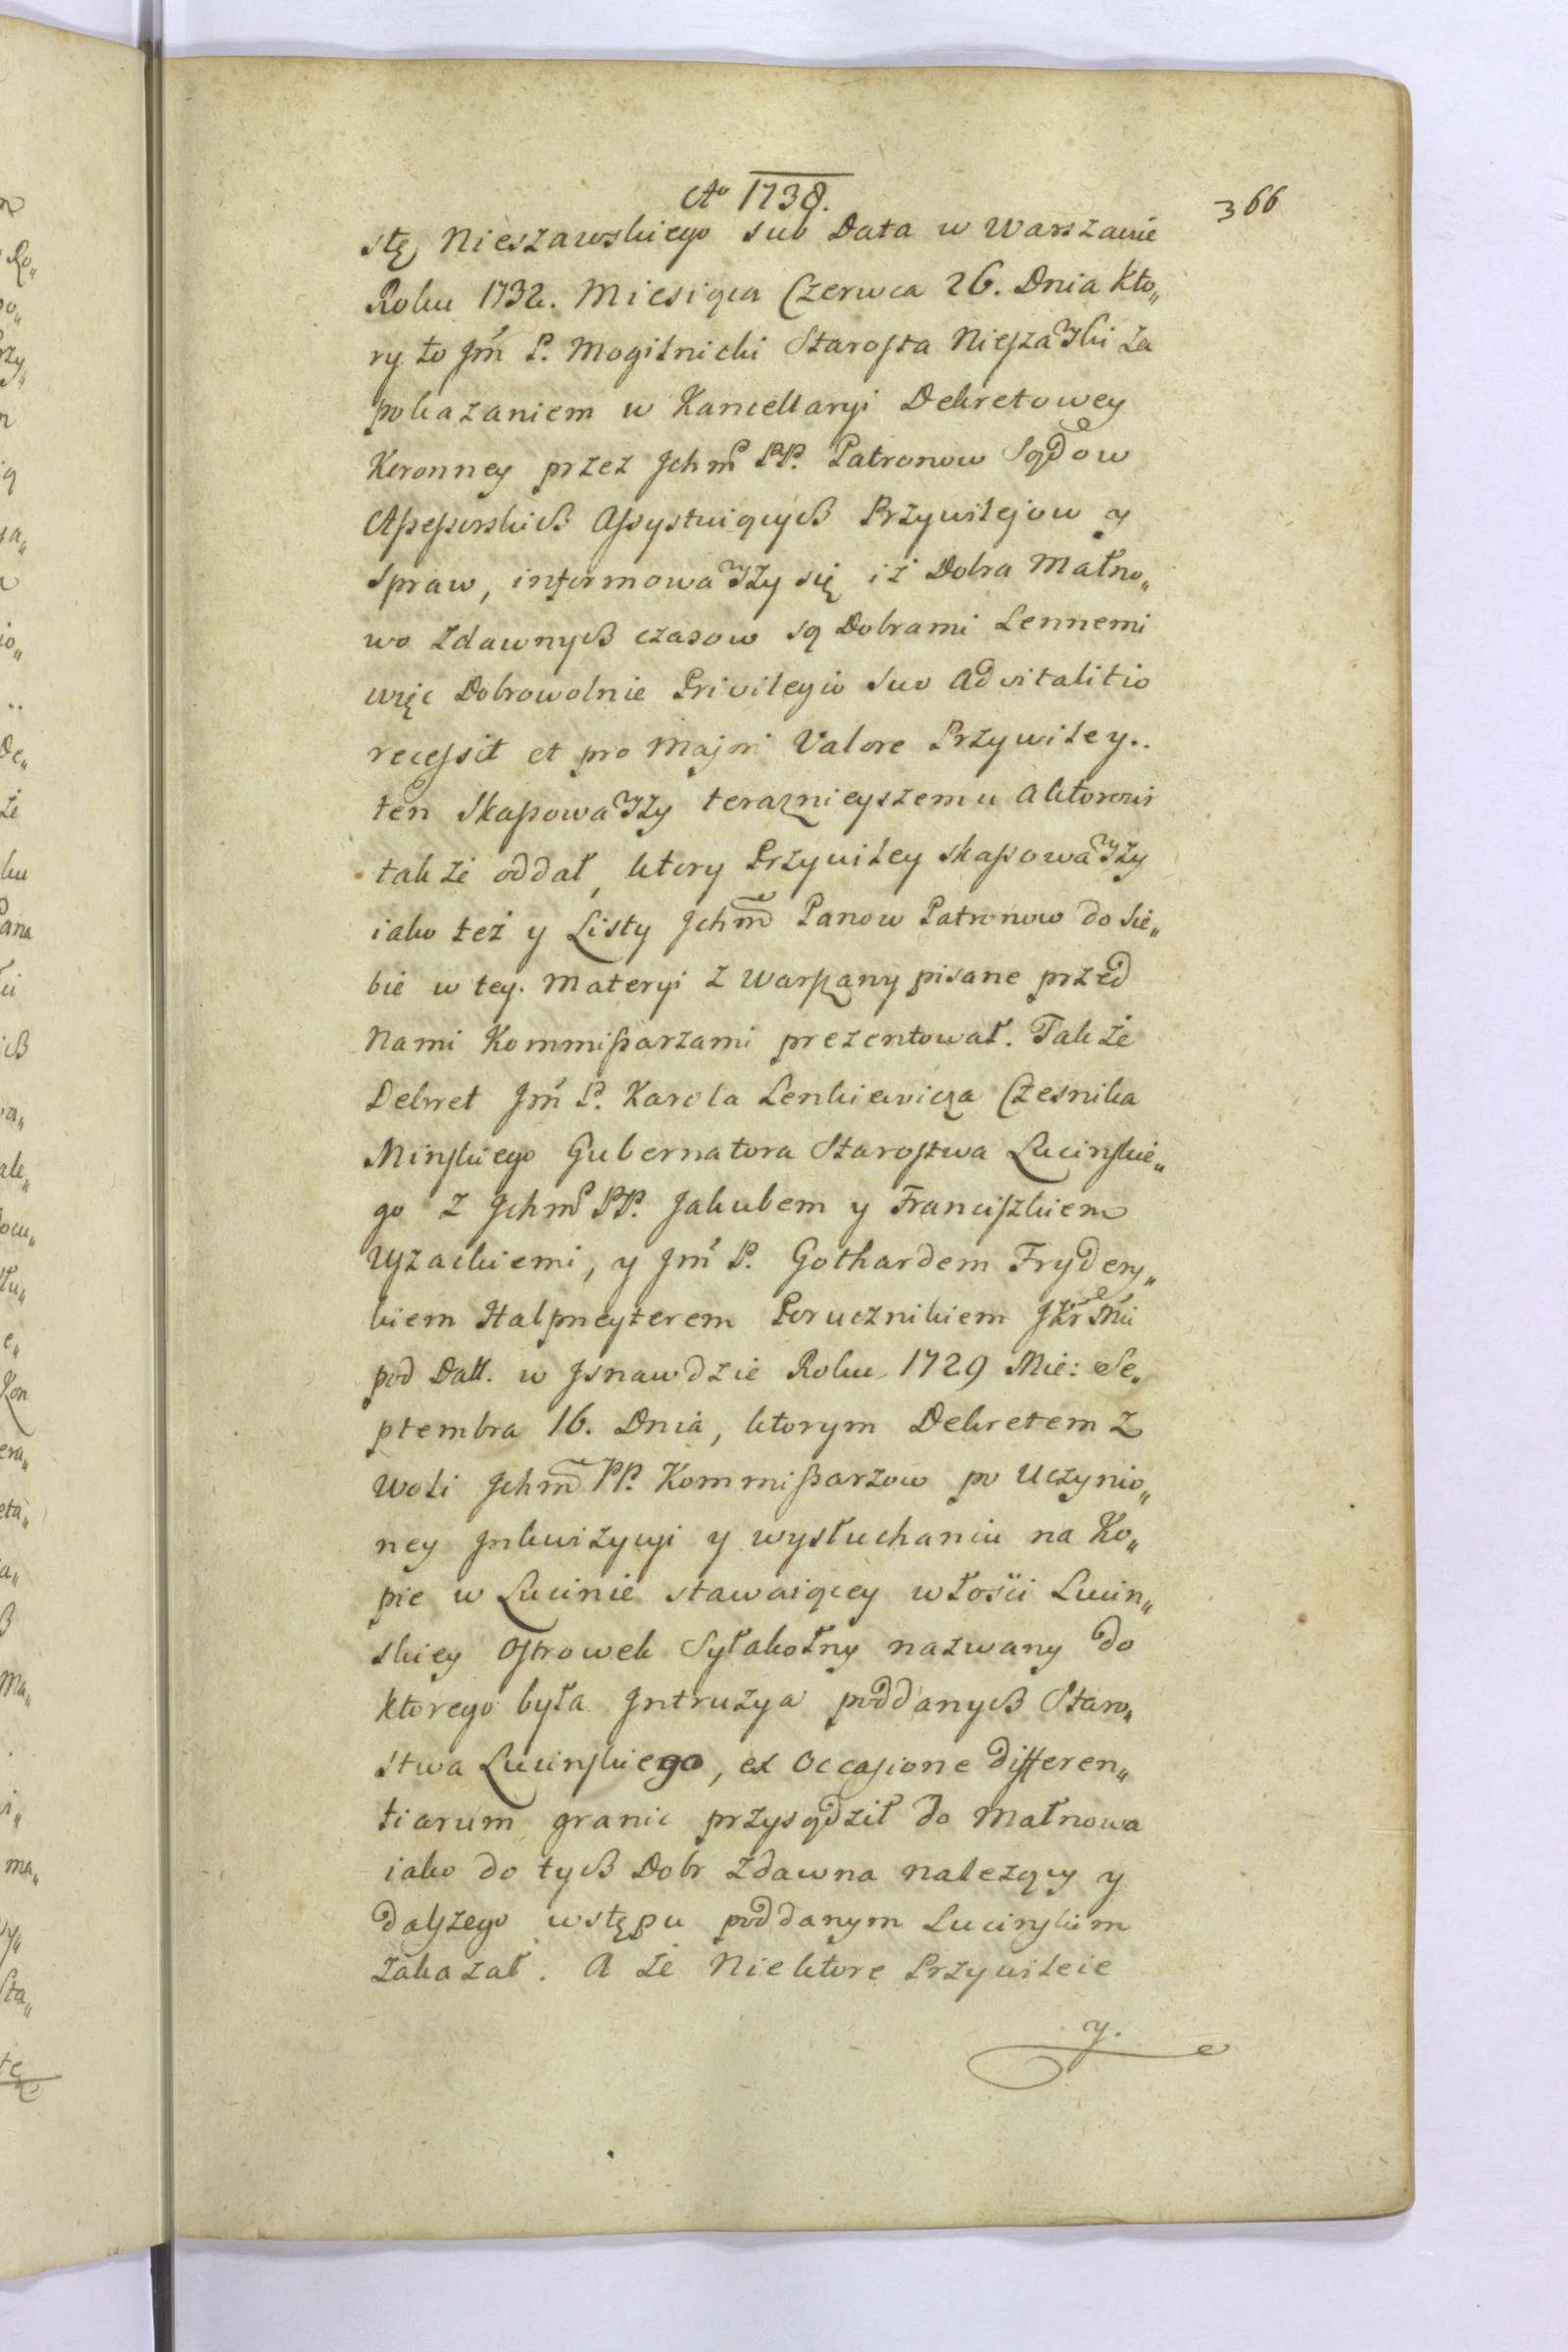 Aº 1738.
366
stę Nieszawskiego sub Data w Warszawie
Roku 1732. Miesiąca Czerwca 26. Dnia kto„
ry to Jm̃ P. Mogilnicki Starosta Nieszawski za
pokazaniem w Kancellaryi Dekretowey
Koronney przez Jchm̃ PP. Patronow Sądow
Assessorskich Assystuiących Przywilejow y
Spraw, informowawszy się iż Dobra Małno„
wo zdawnych czasow są Dobrami Lennemi
więc Dobrowolnie Privilegio suo Advitalitio
recessit et pro majori Valore Przywiley..
ten Skassowawszy teraznieyszemu Aktorowi
takze oddał, ktory Przywiley skassowawszy
iako też y Listy Jchm̃ Panow Patronow do sie„
bie w tey. Materyi z Warszawy pisane przed
Nami Kommissarzami prezentował. Takze
Dekret Jm̃ P. Karola Lenkiewicza Czesnika
Minskiego Gubernatora Starostwa Lucinskie„
go z Jchm̃ PP. Jakubem y Franciszkiem
Uzackiemi, y Jm̃ P. Gothardem Frydery„
kiem Halpneyterem Porucznikiem JKr Mci
pod Datt. w Jsnawdzie Roku 1729 Mie: Se„
ptembra 16. Dnia, ktorym Dekretem z
Woli Jchm̃ PP. Kommissarzow po Uczynio„
ney Jnkwizycyi y wysłuchaniu na Ko„
pie w Lucinie stawaiącey włości Lucin„
skiey Ostrowek Syłakołny nazwany do
ktorego była Jntruzya poddanych Staro„
stwa Lucinskiego, ex Occasione differen„
tiarum granic przysądził do Małnowa
iako do tych Dobr zdawna nalezący y
dalszego wstępu poddanym Lucinskim
zakazał. A że Niektore Przywileie
y.